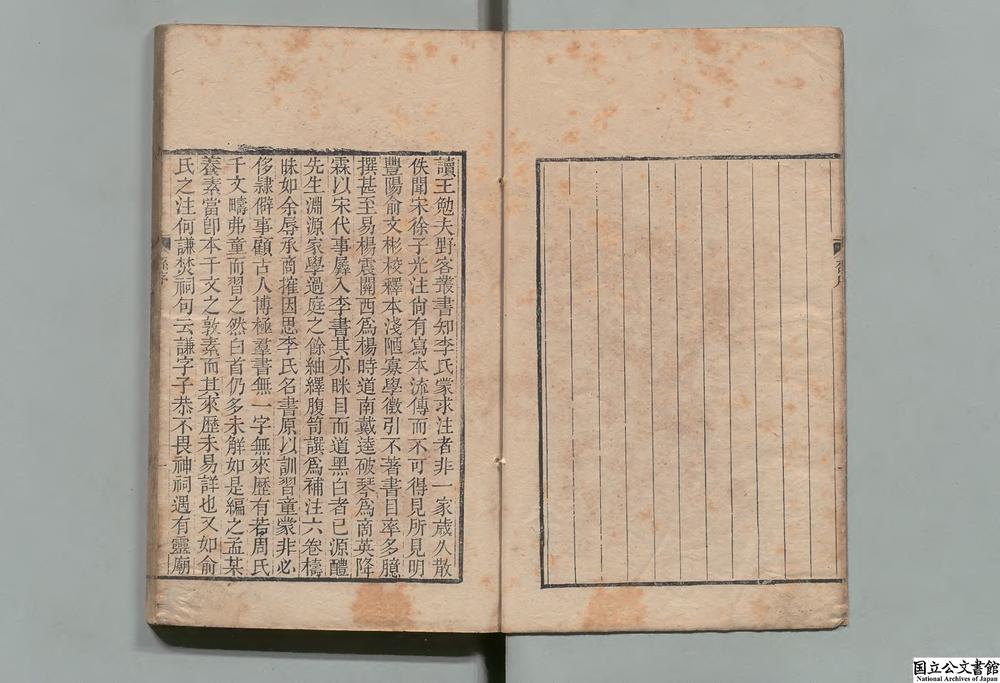 讀王勉夫野客叢書知李氏蒙求注者非一家歲久散
佚聞宋徐子光注尙有寫本流傳而不可得見所見明
豐陽俞文彬梭釋本淺陋寡學徵引不著書目率多臆
撰甚至易楊震關西爲楊時道南戴逵破琴爲商英降
霖以宋代事羼入李書其亦眯目而道黑白者已源醴
先生淵源家學過庭之餘紬繹腹笥譔爲補注六卷檮
昧如余辱承商搉因思李氏名書原以訓習童蒙非必
侈隷僻事顧古人博極羣書無一字無來歷有若周氏
千文疇弗童而習之然白首仍多未解如是編之孟某
養素當卽本千文之敦素而其來歷未易詳也又如俞
氏之注何謙焚祠句云謙字子恭不畏神祠遇有靈廟
國立公文書館
National Archives of Japan